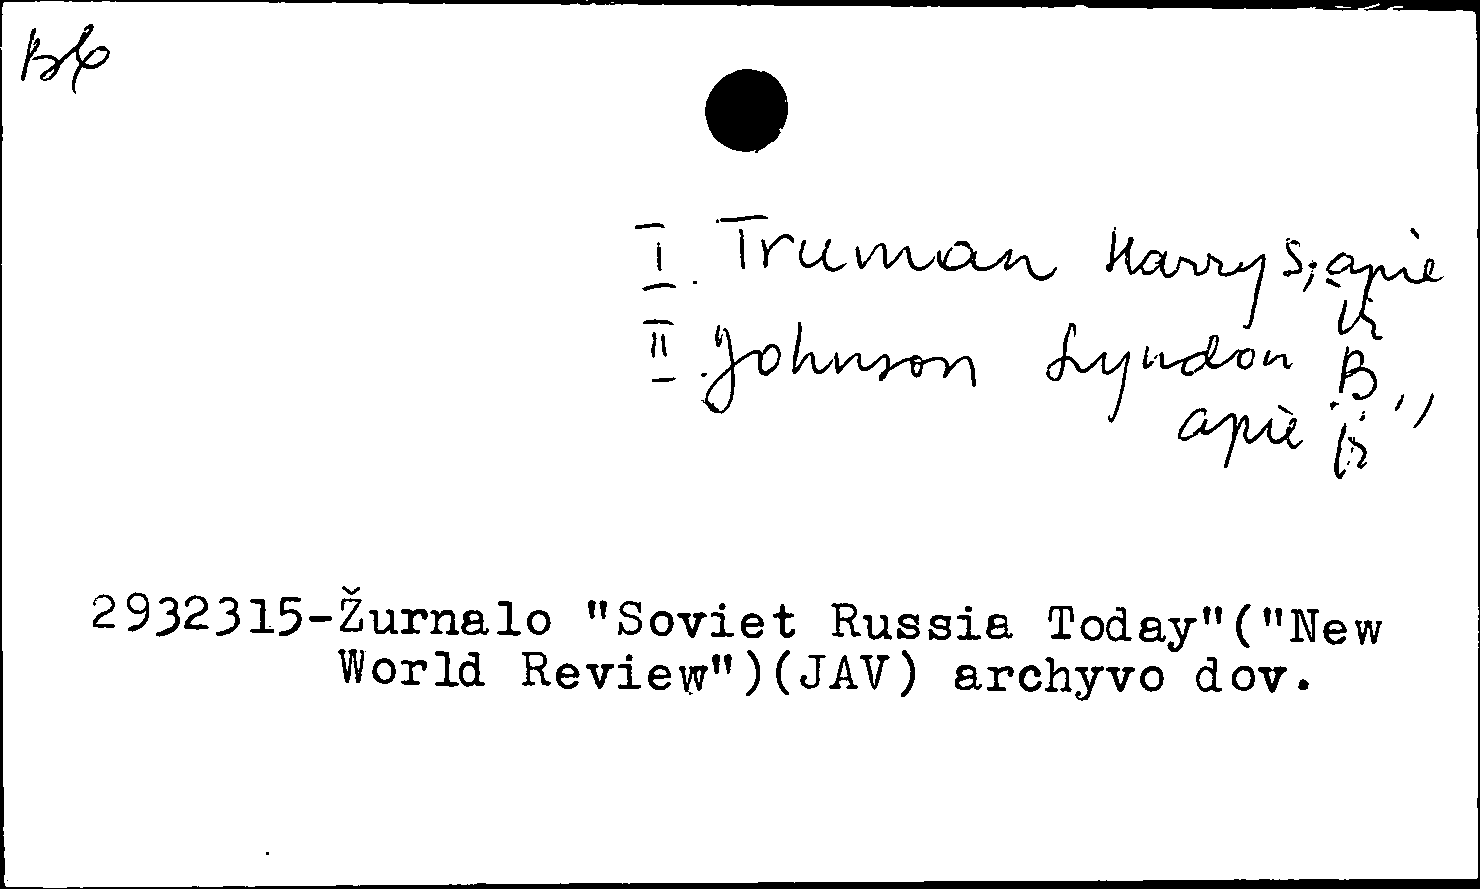 I. Truman Harry S, apie
jį
II. Johnson Lyndon B.,
apie jį
2932315-Žurnalo "Soviet Russia Today"("New
World Review")(JAV) archyvo dov.